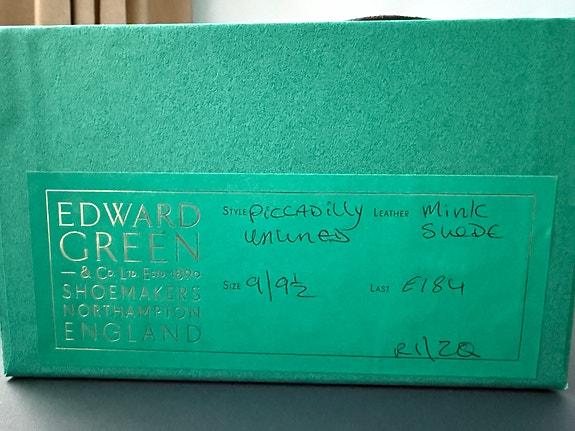 EDWARD
GREEN
& Co. Ltd. Estd 1890
SHOEMAKERS
NORTHAMPTON
ENGLAND
STYLE Piccadilly LEATHER Mink
UNLINED SUEDE
SIZE 9/9½ LAST E184
R1/2Q